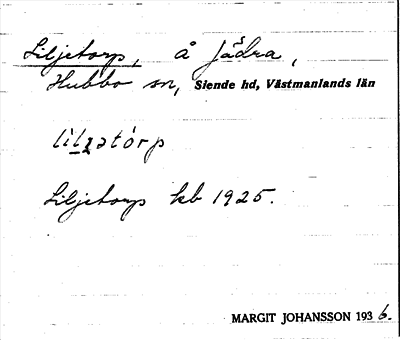 Liljetorp, å Jädra,
Hubbo sn, Siende hd, Västmanlands län
lìljətórp
Liljetorp kb 1925.
MARGIT JOHANSSON 1936.